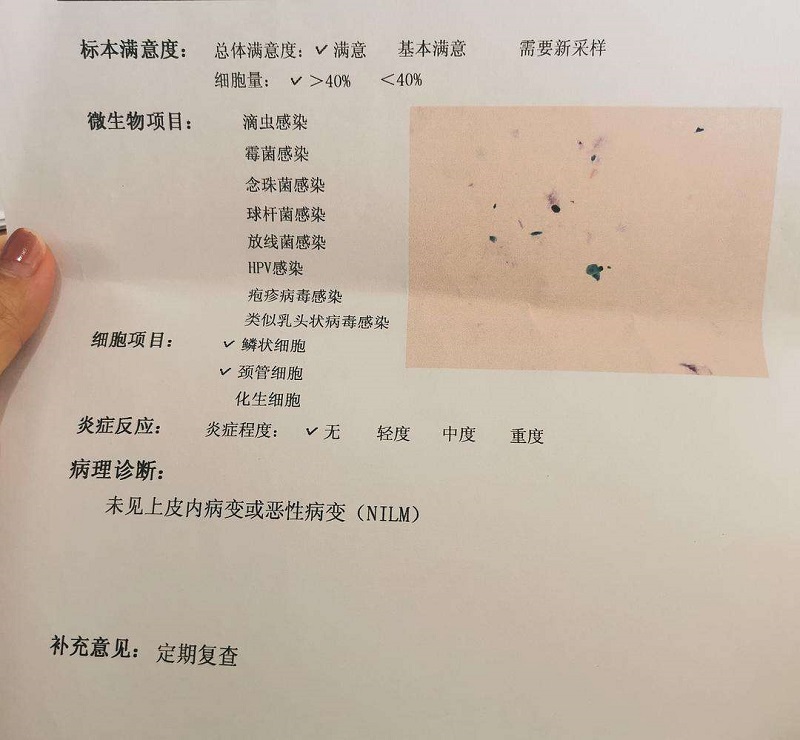 标本满意度： 总体满意度：✓满意 基本满意 需要新采样
细胞量： ✓＞40% ＜40%
微生物项目： 滴虫感染
霉菌感染
念珠菌感染
球杆菌感染
放线菌感染
HPV感染
疱疹病毒感染
类似乳头状病毒感染
细胞项目： ✓鳞状细胞
✓颈管细胞
化生细胞
炎症反应： 炎症程度： ✓无 轻度 中度 重度
病理诊断：
未见上皮内病变或恶性病变（NILM）
补充意见： 定期复查